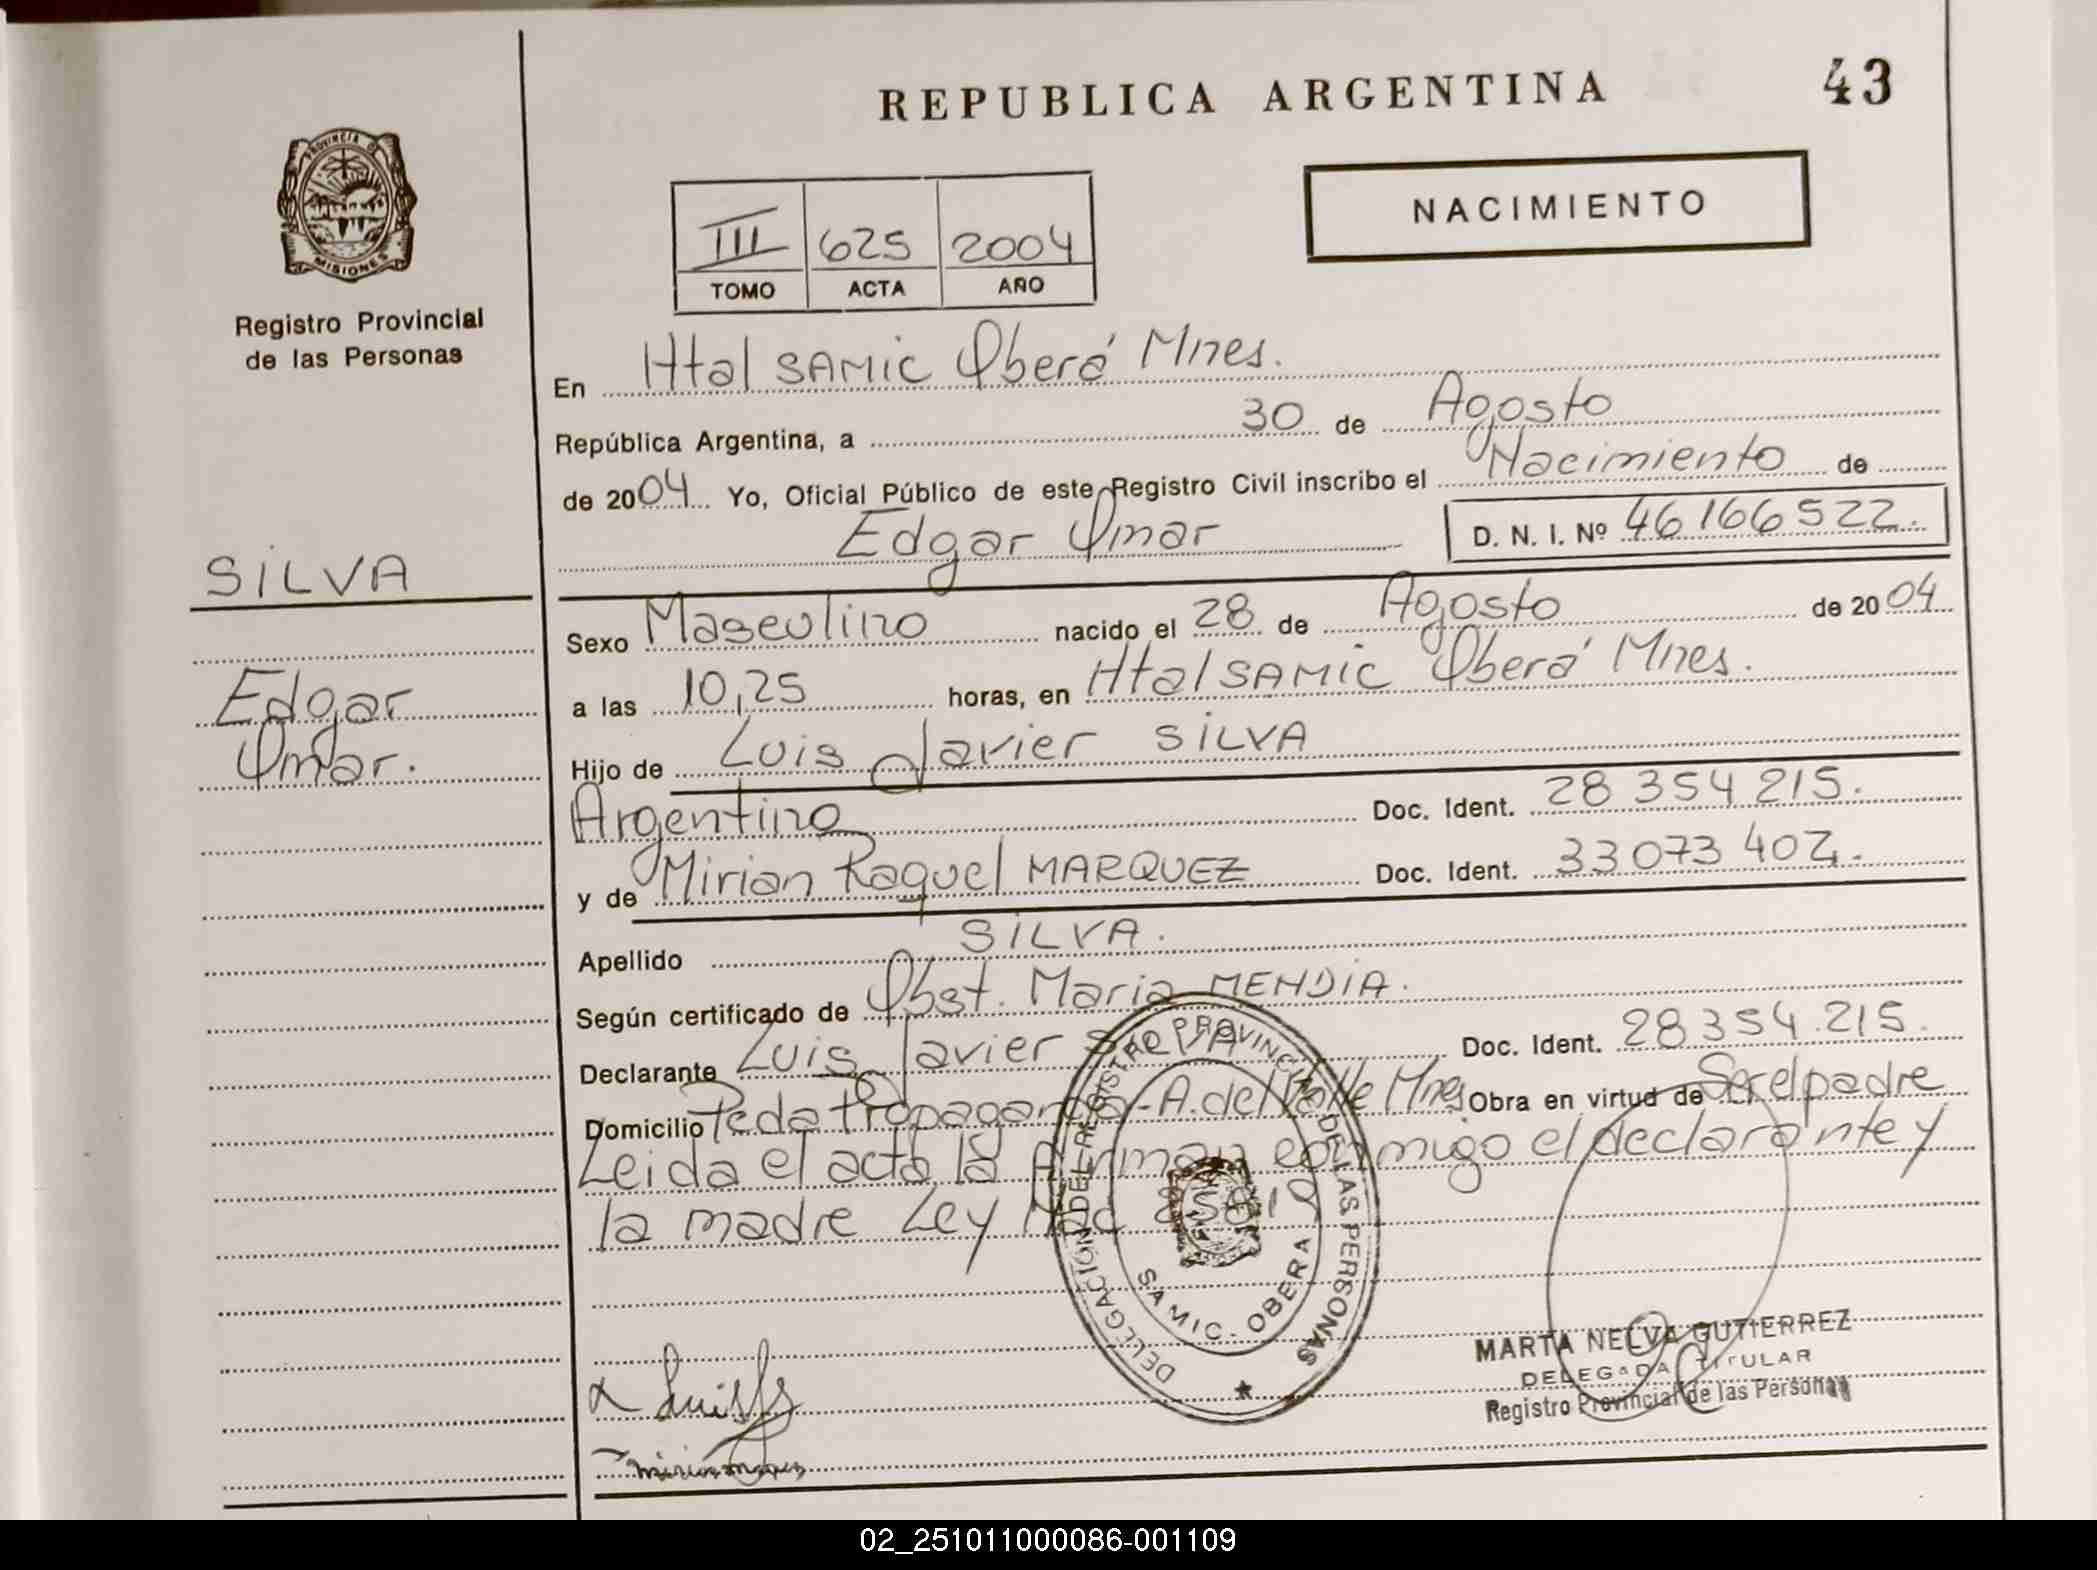 REPUBLICA ARGENTINA
43
PROVINCIA D
MISIONES
Registro Provincial
de las Personas
NACIMIENTO
III 625 2004
TOMO ACTA AÑO
En Htal SAMIC Oberá Mnes.
República Argentina, a 30 de Agosto
de 2004 Yo, Oficial Público de este Registro Civil inscribo el Nacimiento de
Edgar Omar D. N. I. Nº 46166522.
SILVA
Edgar
Omar.
Sexo Masculino nacido el 28 de Agosto de 2004
a las 10,25 horas, en Htal SAMIC Oberá Mnes.
Hijo de Luis Javier SILVA
Argentino Doc. Ident. 28 354 215.
y de Mirian Raquel MARQUEZ Doc. Ident. 33 073 402.
Apellido SILVA.
Según certificado de Obst. Maria MENDIA.
Declarante Luis Javier SILVA Doc. Ident. 28354.215.
Domicilio Pcda Propaganda - A. del Valle Mnes Obra en virtud de Ser el padre
Leida el acta la firman conmigo el declarante y
la madre Ley
DELEGACIÓN DEL REGISTRO PROVINCIAL DE LAS PERSONAS
SAMIC - OBERA
MARTA NELVA GUTIERREZ
DELEGADA TITULAR
Registro Provincial de las Personas
02_251011000086-001109